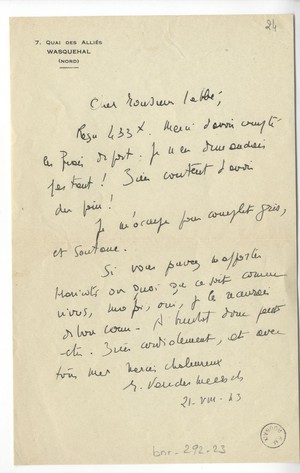 7. QUAI DES ALLIÉS
WASQUEHAL
(NORD)
24
Cher Monsieur l'abbé,
Reçu 433 X. Merci d'avoir compté
les frais de port. Je n'en demandais
pas tant ! Bien content d'avoir
du
Je m'occupe pour complet gris,
et soutane.
Si vous pouvez m'apporter
haricots ou quoi que ce soit comme
vivres, ma foi, oui, je le
de bon cœur. A bientôt donc peut-
être. Bien cordialement, et avec
tous mes mercis chaleureux
M. Van der Meersch
21. VIII - 43
bnr-292-23